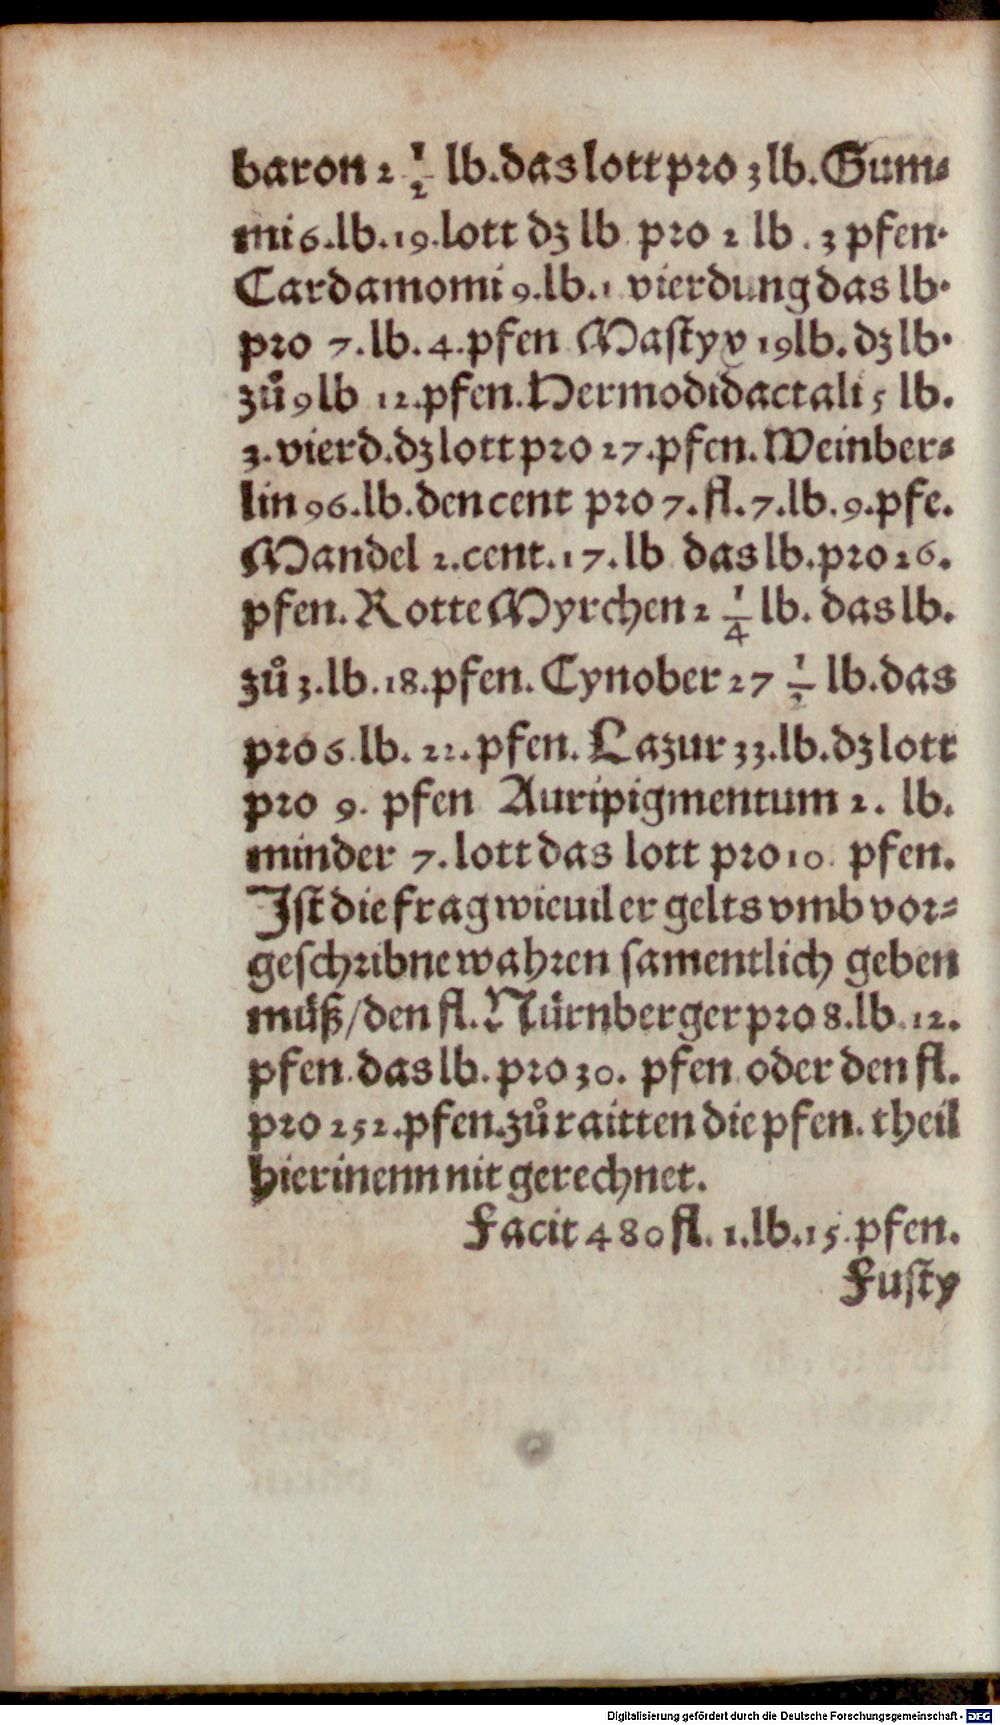 baron 2 1/2 lb. das lott pro 3 lb. Gum⸗
mi 6. lb. 19. lott dz lb pro 2 lb. 3 pfen.
Cardamomi 9. lb. 1 vierdung das lb.
pro 7. lb. 4. pfen Mastyx 19 lb. dz lb.
zů 9 lb 12. pfen. Hermodidactali 5 lb.
3. vierd. dz lott pro 27. pfen. Weinber⸗
lin 96. lb. den cent pro 7. fl. 7. lb. 9. pfe.
Mandel 2. cent. 17. lb das lb. pro 26.
pfen. Rotte Myrrhen 2 1/4 lb. das lb.
zů 3. lb. 18. pfen. Cynober 27 1/2 lb. das
pro 6. lb. 22. pfen. Lazur 33. lb. dz lott
pro 9. pfen Auripigmentum 2. lb.
minder 7. lott das lott pro 10 pfen.
Ist die frag wieuil er gelts vmb vor⸗
geschribne wahren samentlich geben
müß/ den fl. Nürnberger pro 8. lb. 12.
pfen. das lb. pro 30. pfen oder den fl.
pro 252. pfen. zů raitten die pfen. theil
hierinenn nit gerechnet.
Facit 480 fl. 1. lb. 15. pfen.
Fusty
Digitalisierung gefördert durch die Deutsche Forschungsgemeinschaft - DFG